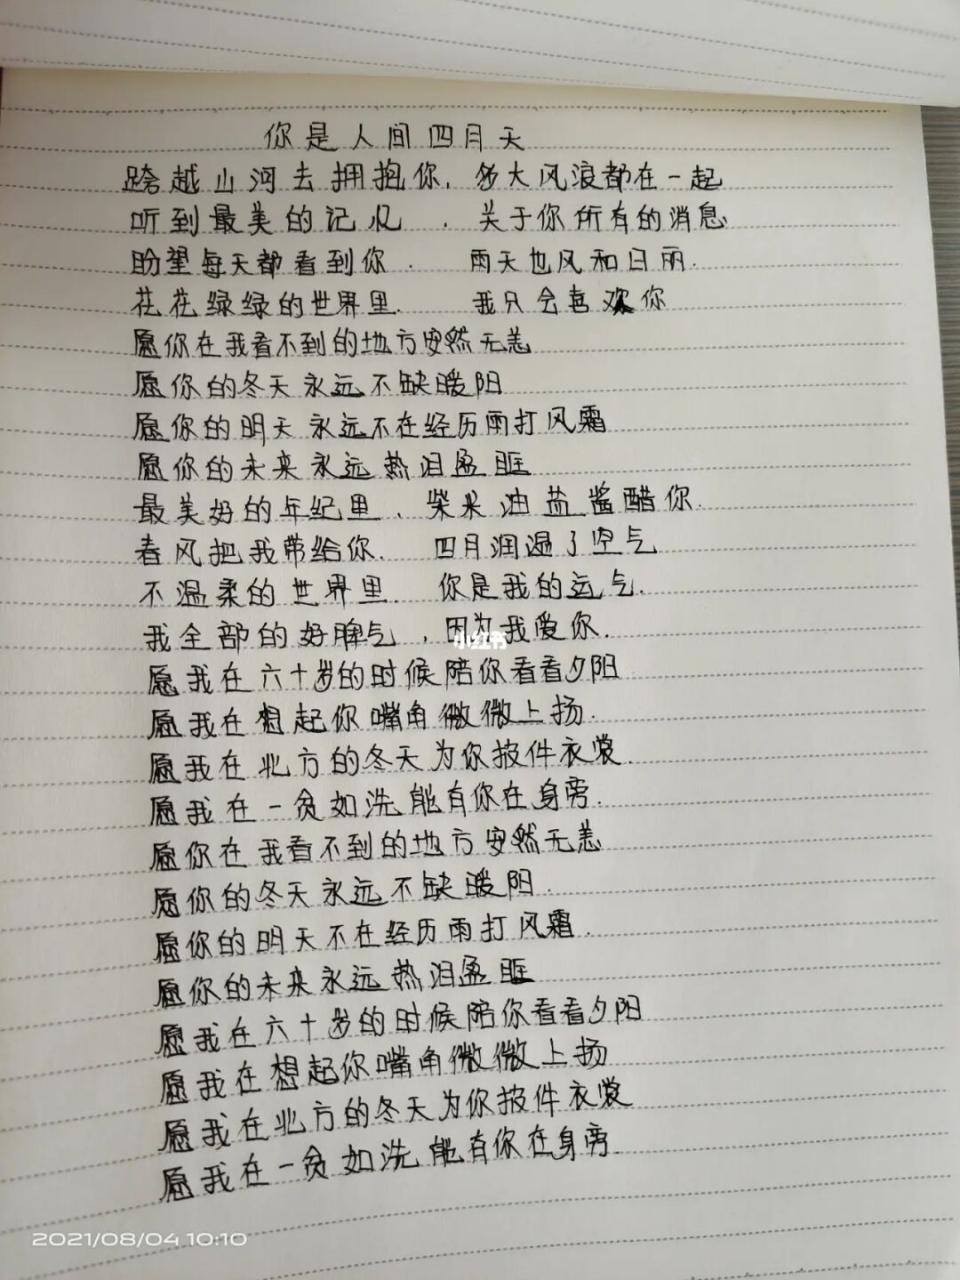 你是人间四月天
跨越山河去拥抱你, 多大风浪都在一起
听到最美的记忆 , 关于你所有的消息
盼望每天都看到你. 雨天也风和日丽.
花花绿绿的世界里. 我只会喜欢你
愿你在我看不到的地方安然无恙
愿你的冬天永远不缺暖阳
愿你的明天永远不在经历雨打风霜
愿你的未来永远热泪盈眶
最美好的年纪里、柴米油盐酱醋你.
春风把我带给你. 四月润湿了空气
不温柔的世界里. 你是我的运气.
我全部的好脾气 , 因为我爱你.
愿我在六十岁的时候陪你看看夕阳
愿我在想起你嘴角微微上扬.
愿我在北方的冬天为你披件衣裳.
愿我在一贫如洗能有你在身旁.
愿你在我看不到的地方安然无恙
愿你的冬天永远不缺暖阳.
愿你的明天不在经历雨打风霜.
愿你的未来永远热泪盈眶
愿我在六十岁的时候陪你看看夕阳
愿我在想起你嘴角微微上扬
愿我在北方的冬天为你披件衣裳
愿我在一贫如洗能有你在身旁.
小红书
2021/08/04 10:10